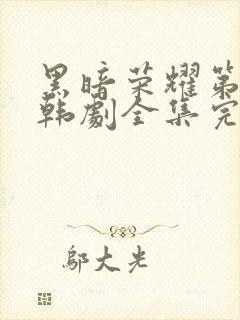 黑暗荣耀第
韩劇全集完
鄔大光